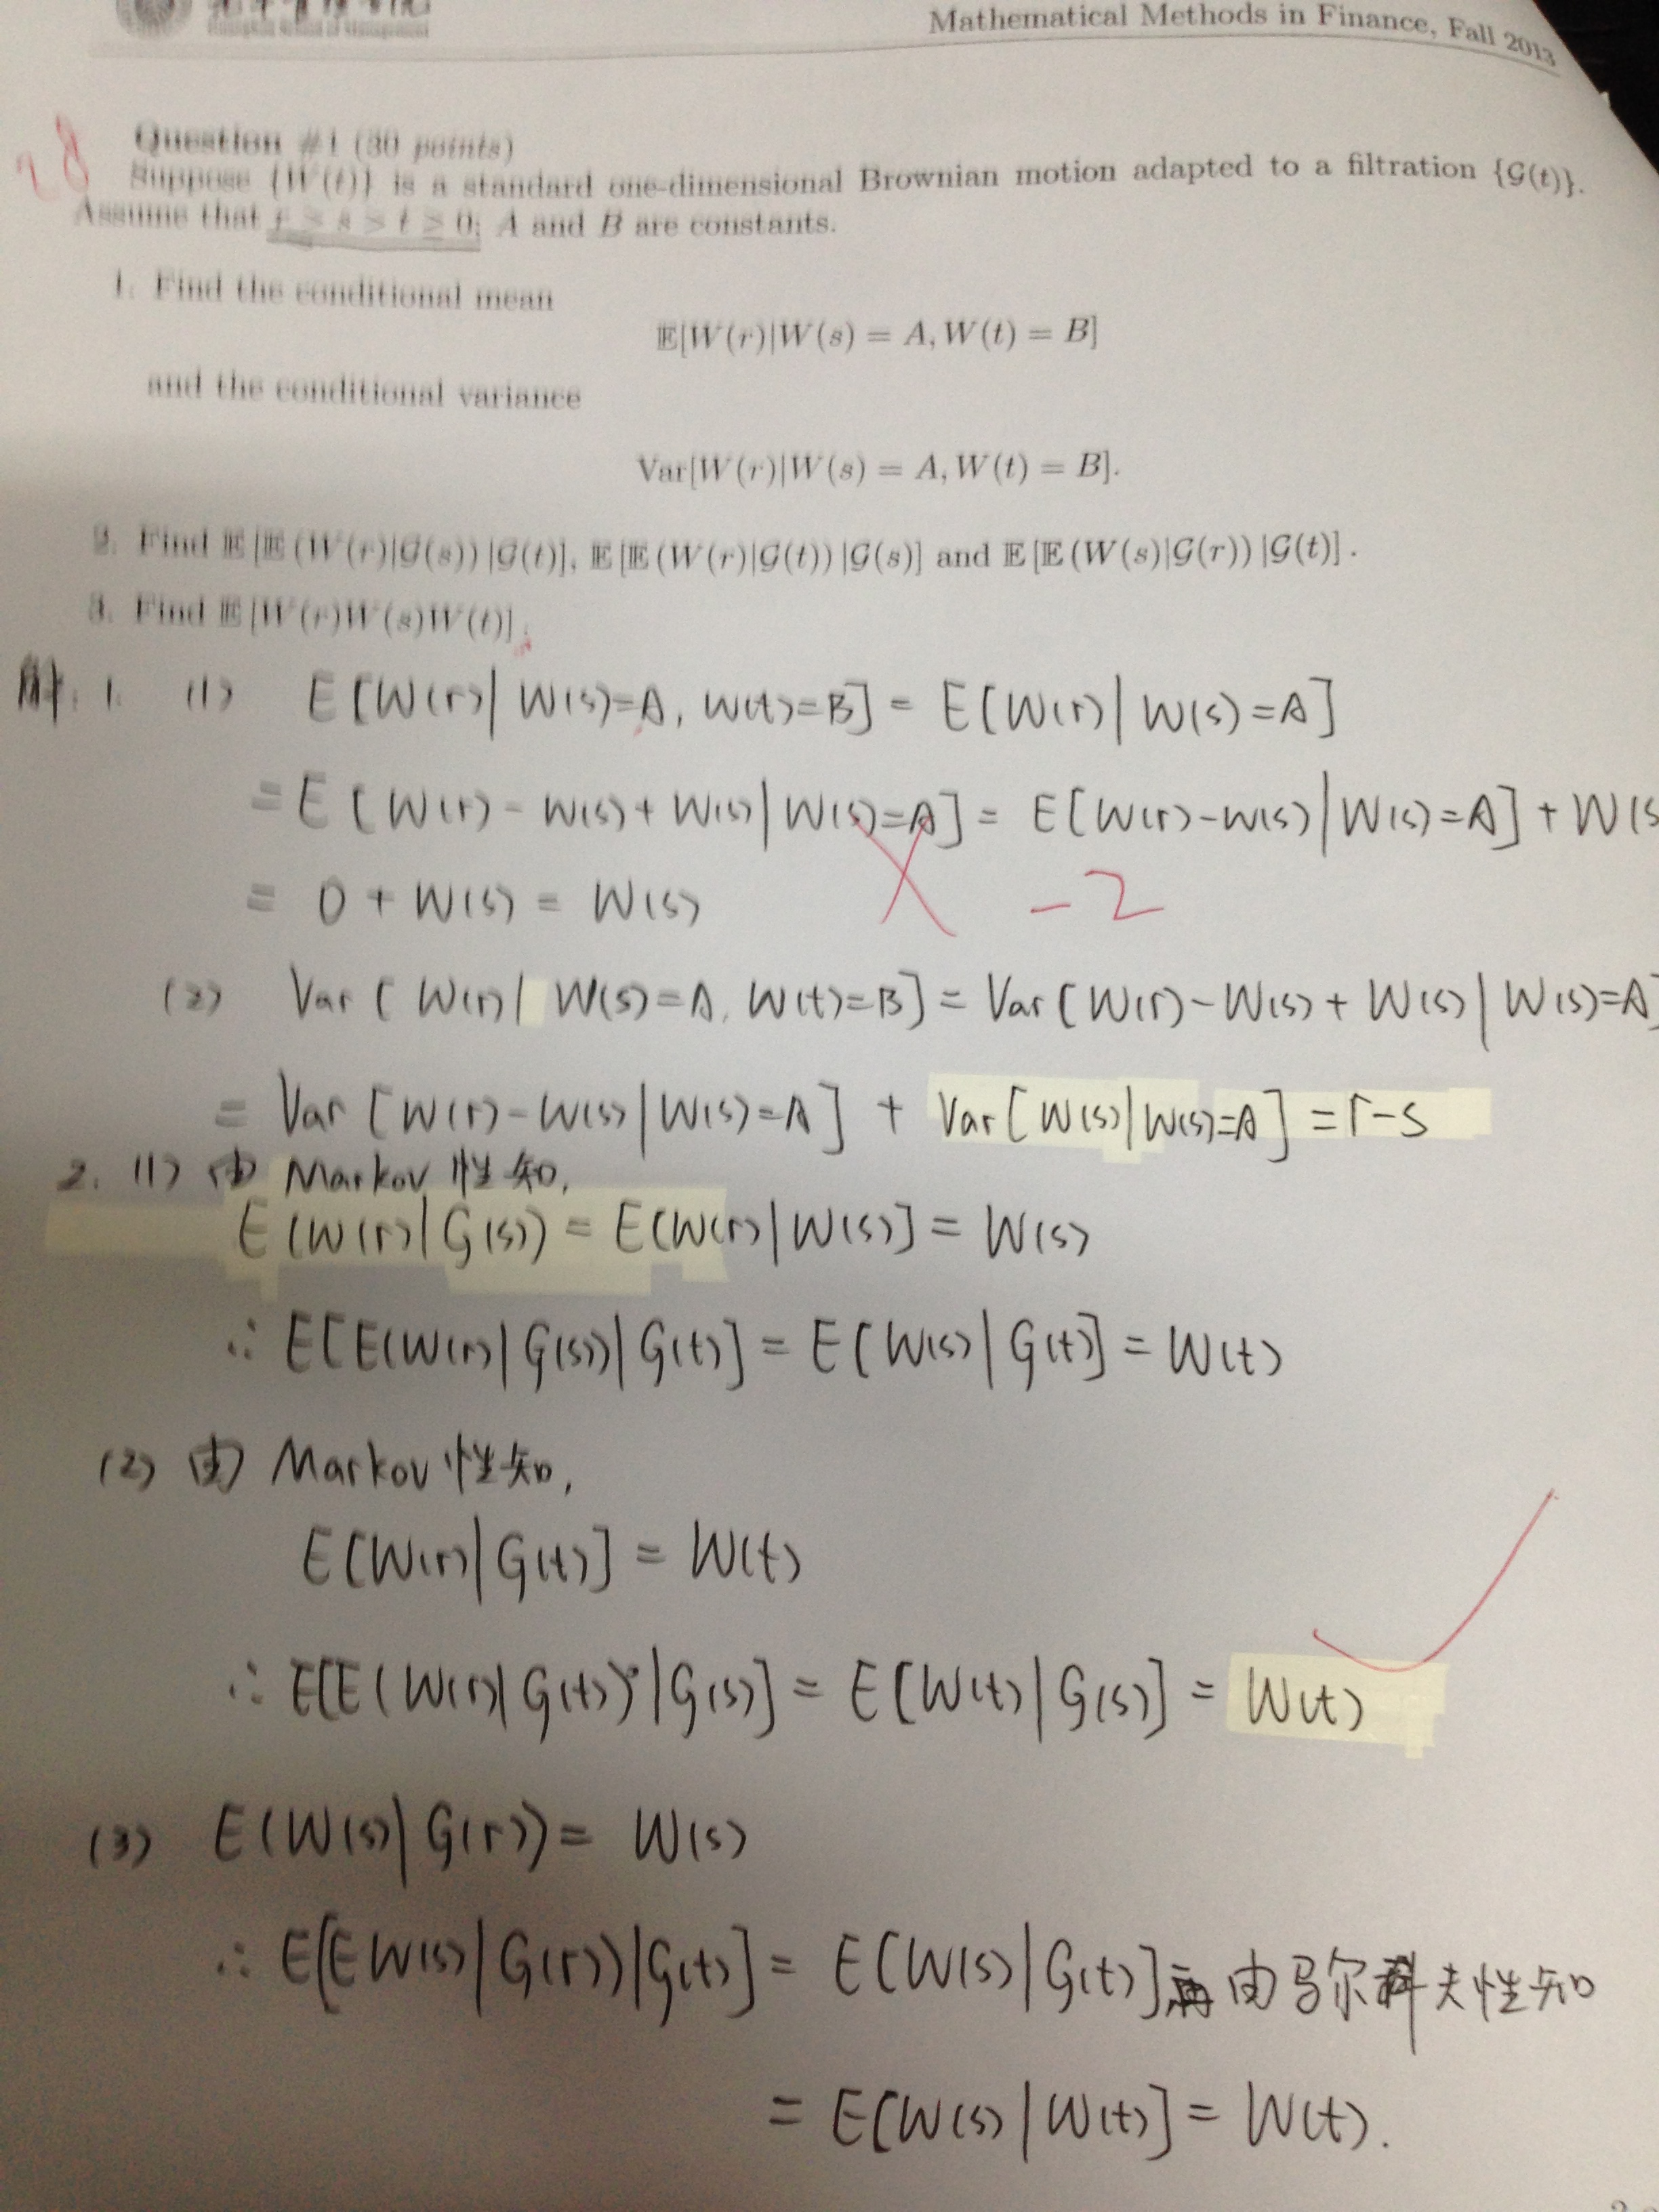 Mathematical Methods in Finance, Fall 2013
28
Question #1 (30 points)
Suppose {W(t)} is a standard one-dimensional Brownian motion adapted to a filtration {𝒢(t)}.
Assume that r > s > t ≥ 0; A and B are constants.
1. Find the conditional mean
𝔼[W(r)|W(s) = A, W(t) = B]
and the conditional variance
Var[W(r)|W(s) = A, W(t) = B].
2. Find 𝔼[𝔼(W(r)|𝒢(s))|𝒢(t)], 𝔼[𝔼(W(r)|𝒢(t))|𝒢(s)] and 𝔼[𝔼(W(s)|𝒢(r))|𝒢(t)].
3. Find 𝔼[W(r)W(s)W(t)].
解. 1. (1) E[W(r)| W(s)=A, W(t)=B] = E[W(r)| W(s)=A]
= E[W(r) - W(s) + W(s)|W(s)=A] = E[W(r)-W(s)|W(s)=A] + W(s
= 0 + W(s) = W(s) -2
(2) Var[W(r)| W(s)=A, W(t)=B] = Var[W(r)-W(s)+W(s)|W(s)=A]
= Var[W(r)-W(s)|W(s)=A] + Var[W(s)|W(s)=A] = r-s
2. (1) 由 Markov 性知,
E(W(r)|G(s)) = E(W(r)|W(s)] = W(s)
∴ E[E(W(r)|G(s))|G(t)] = E[W(s)|G(t)] = W(t)
(2) 由 Markov 性知,
E[W(r)|G(t)] = W(t)
∴ E[E(W(r)|G(t))|G(s)] = E[W(t)|G(s)] = W(t)
(3) E(W(s)|G(r)) = W(s)
∴ E[E W(s)|G(r))|G(t)] = E[W(s)|G(t)] 再由马尔科夫性知
= E[W(s)|W(t)] = W(t).